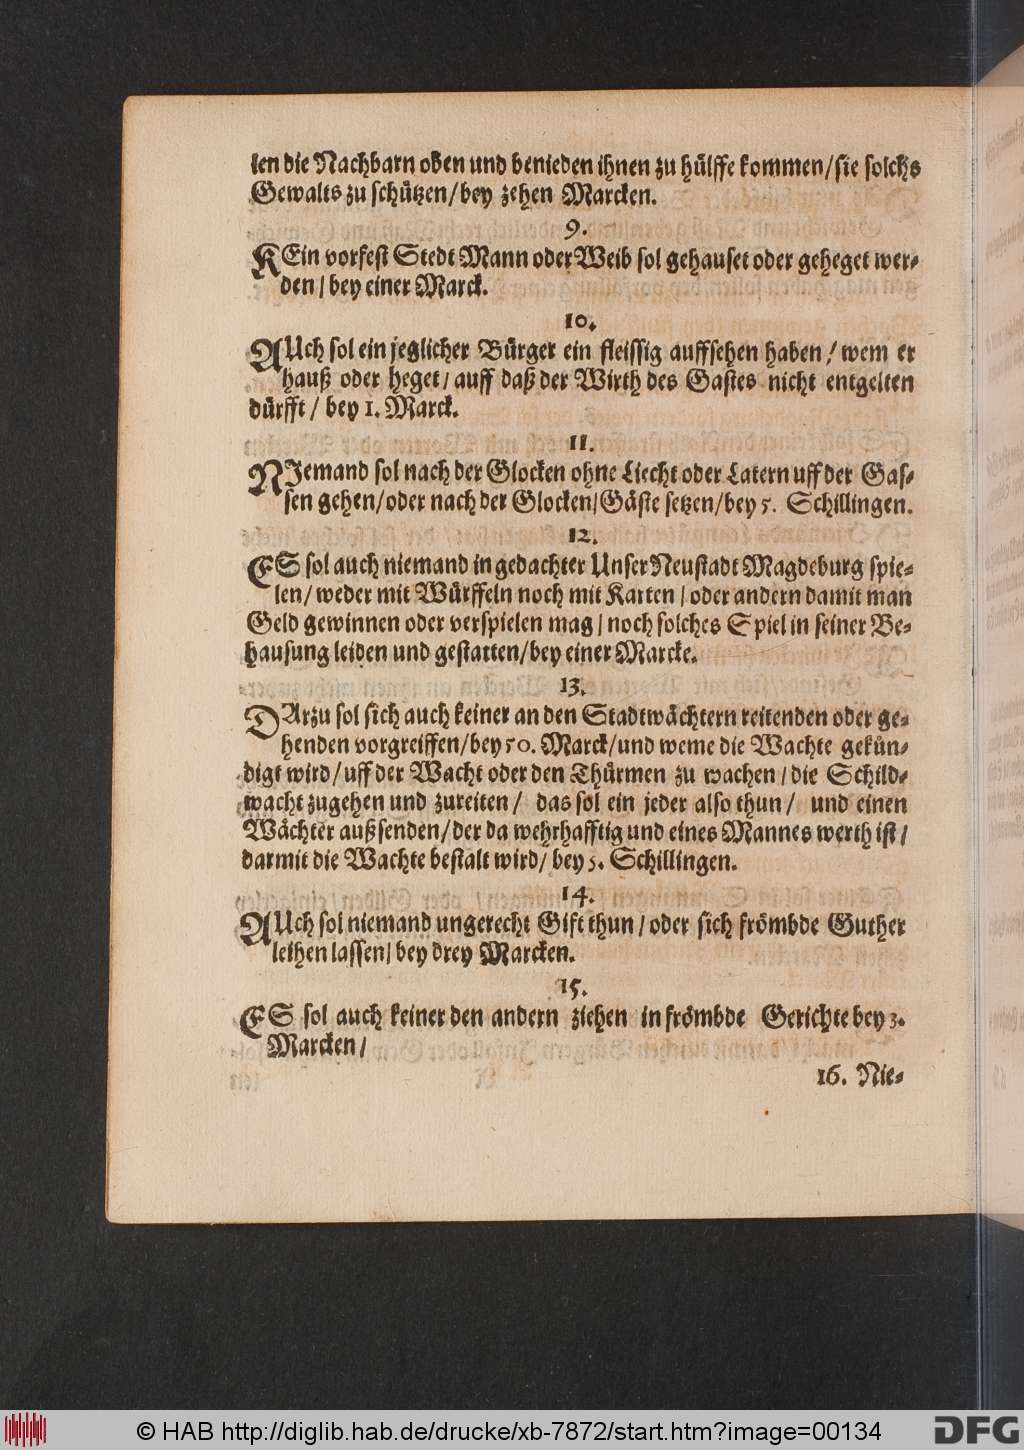 len die Nachbarn oben und benieden ihnen zu hülffe kommen/sie solchs
Gewalts zu schützen/bey zehen Marcken.
9.
KEin vorfest Stedt Mann oder Weib sol gehauset oder geheget wer-
den/bey einer Marck.
10.
AUch sol ein jeglicher Bürger ein fleissig auffsehen haben/wem er
hauß oder heget/auff daß der Wirth des Gastes nicht entgelten
dürfft/bey 1. Marck.
11.
NJemand sol nach der Glocken ohne Liecht oder Latern uff der Gas-
sen gehen/oder nach der Glocken/Gäste setzen/bey 5. Schillingen.
12.
ES sol auch niemand in gedachter Unser Neustadt Magdeburg spie-
len/weder mit Würffeln noch mit Karten/oder andern damit man
Geld gewinnen oder verspielen mag/noch solches Spiel in seiner Be-
hausung leiden und gestatten/bey einer Marcke.
13.
DArzu sol sich auch keiner an den Stadtwächtern reitenden oder ge-
henden vorgreiffen/bey 50. Marck/und weme die Wachte gekün-
digt wird/uff der Wacht oder den Thürmen zu wachen/die Schild-
wacht zugehen und zureiten/ das sol ein jeder also thun/ und einen
Wächter außsenden/der da wehrhafftig und eines Mannes werth ist/
darmit die Wachte bestalt wird/bey 5. Schillingen.
14.
AUch sol niemand ungerecht Gift thun/oder sich frömbde Guther
leihen lassen/bey drey Marcken.
15.
ES sol auch keiner den andern ziehen in frömbde Gerichte bey 3.
Marcken/
16. Nie-
© HAB http://diglib.hab.de/drucke/xb-7872/start.htm?image=00134
DFG